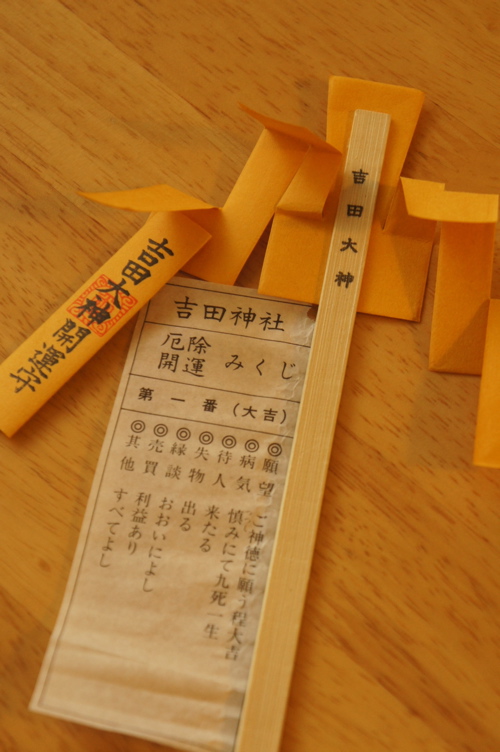 吉田大神
吉田大神
開運守
吉田神社
厄除
開運 みくじ
第一番(大吉)
◎願望 ご神徳に願う程大吉
◎病気 慎みにて九死一生
◎待人 来たる
◎失物 出る
◎縁談 おおいによし
◎売買 利益あり
◎其他 すべてよし